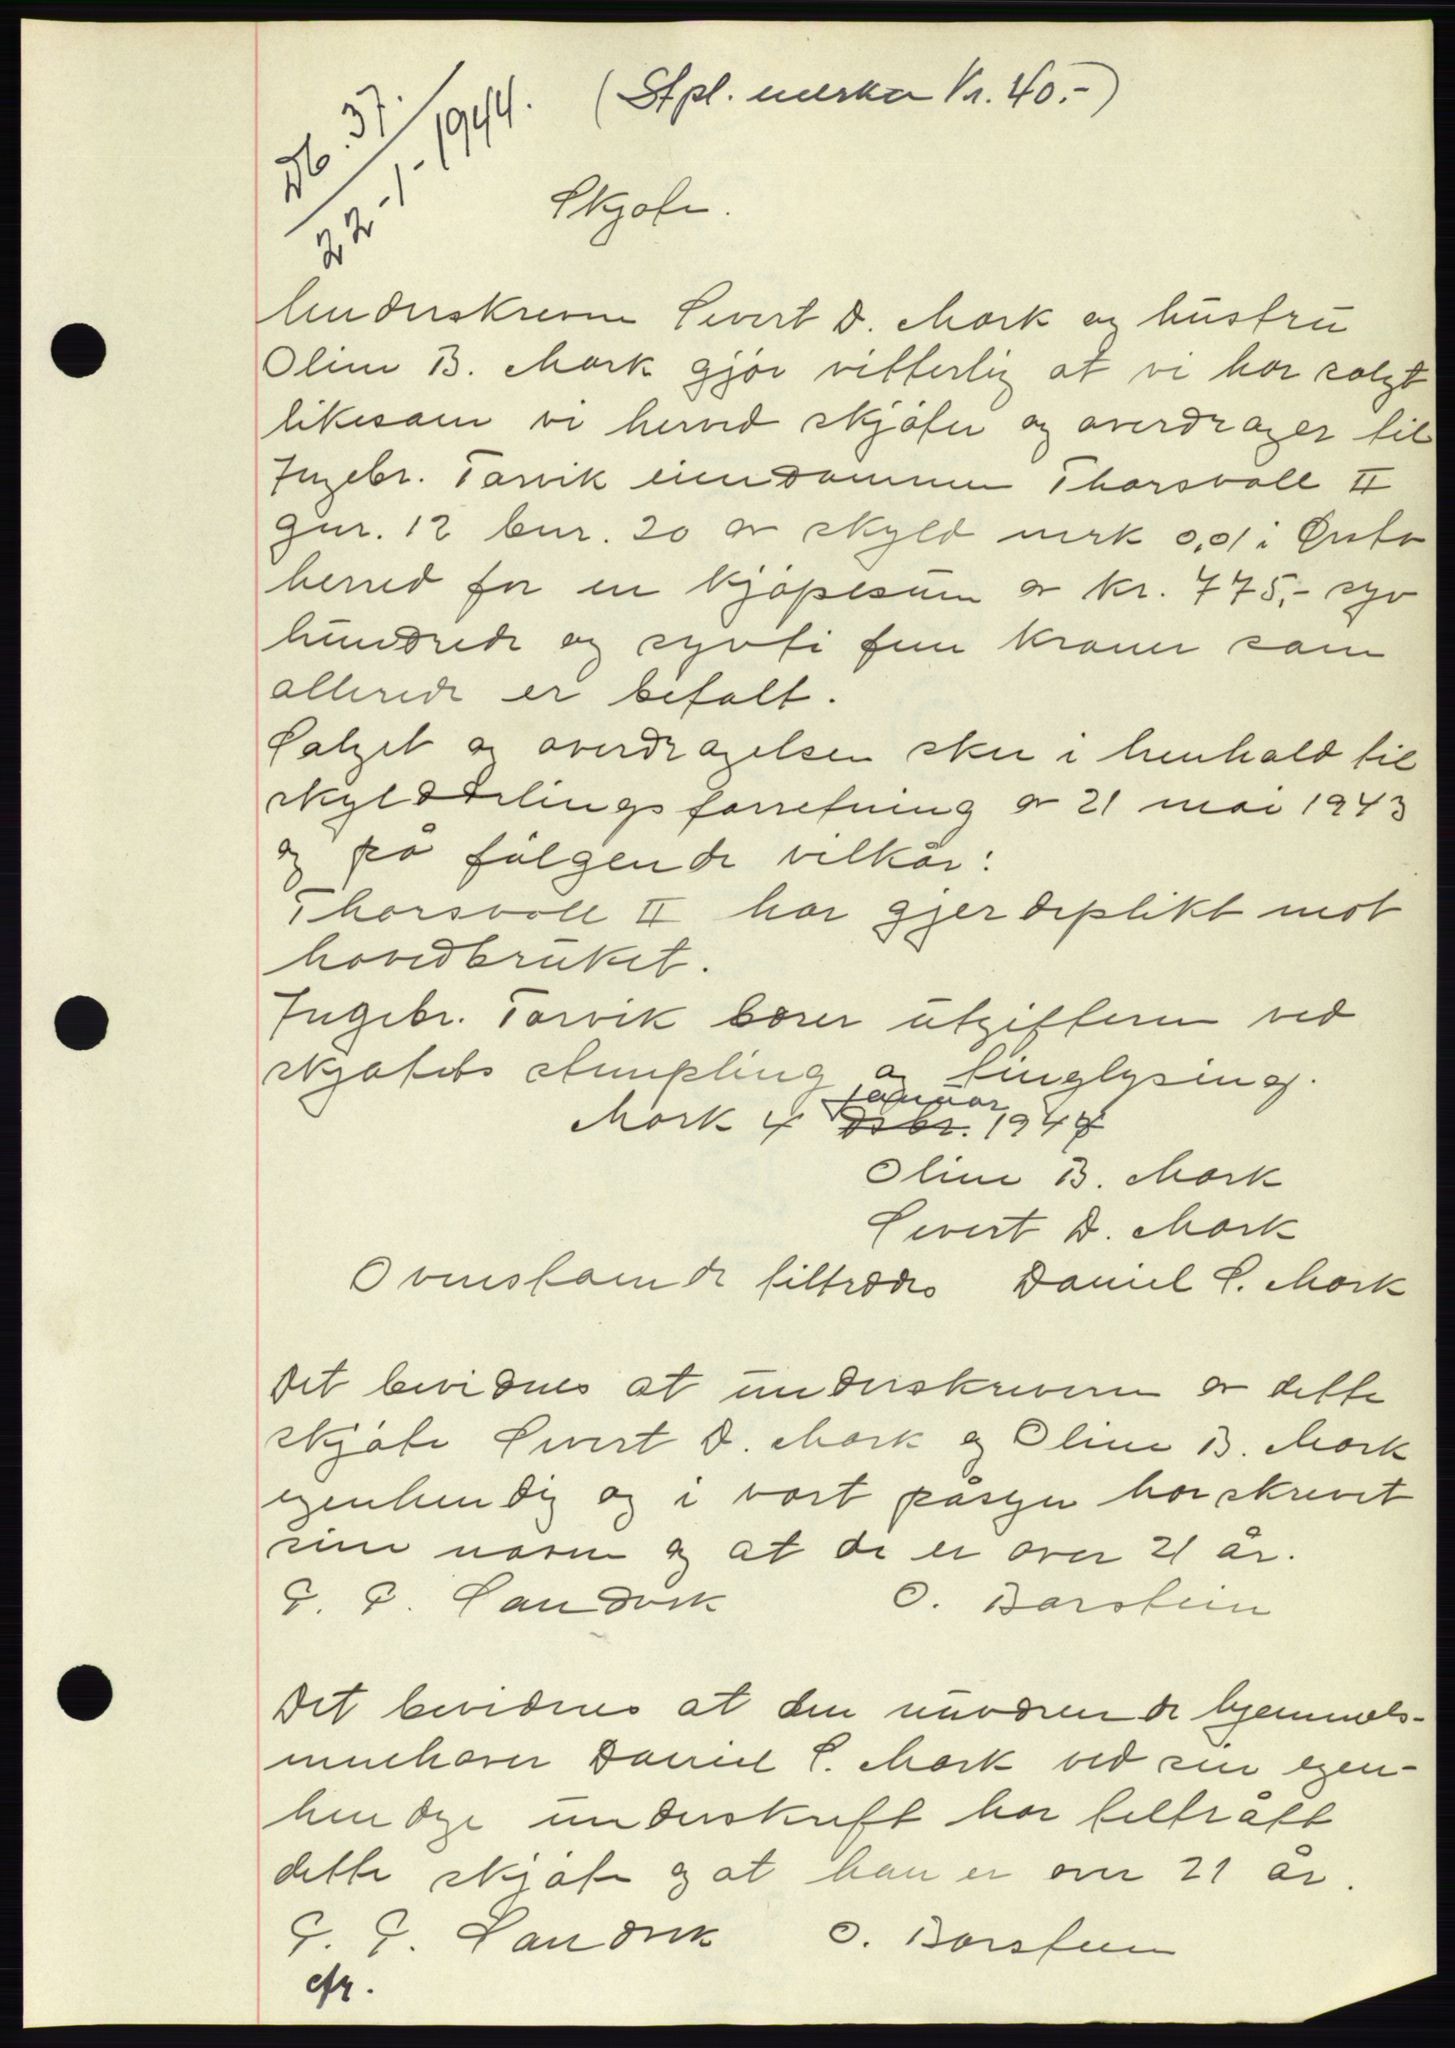 Db. 37.
22-1-1944.
(Stpl. merker Kr. 40.-)
Skjøte.
Underskrevne Sivert D. Mork og hustru
Oline B. Mork gjör vitterlig at vi har solgt
likesom vi herved skjöter og overdrager til
Ingebr. Torvik eiendommen Thorsvoll II
gnr. 12 bnr. 20 av skyld mrk 0,01 i Ørsta
herred for en kjöpesum av kr. 775,- syv
hundrede og sytti fem kroner som
allerede er betalt.
Salget og overdragelsen sker i henhold til
skylddelingsforretning av 21 mai 1943
og på fölgende vilkår:
Thorsvoll II har gjerdeplikt mot
hovedbruket.
Ingebr. Torvik bærer utgiftene ved
skjøtets stempling og tinglysing.
Mork 4 januar 1944
Oline B. Mork
Sivert D. Mork
Ovenstående tiltredes Daniel S. Mork
Det bevidnes at underskriverne av dette
skjöte Sivert D. Mork og Oline B. Mork
egenhendig og i vort påsyn har skrevet
sine navne og at de er over 21 år.
Sandvik O. Barstein
Det bevidnes at den nuværende hjemmels-
innehaver Daniel S. Mork ved sin egen-
hendige underskrift har tiltrått
dette skjöte og at han er over 21 år.
Sandvik O. Barstein